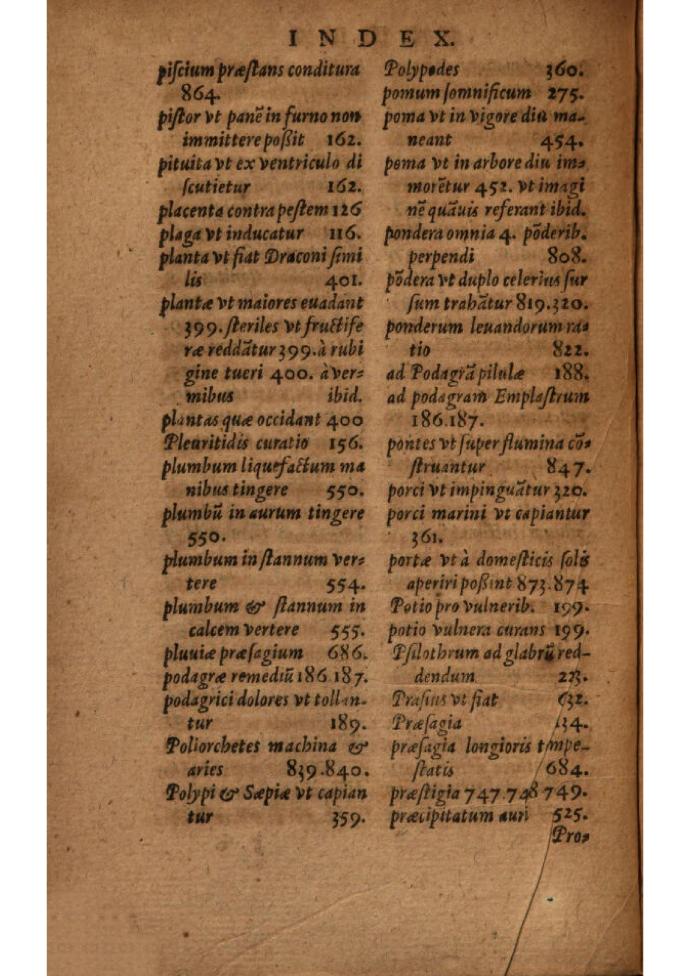 INDEX.
piſcium præſtans conditura
864.
piſtor vt panē in furno non
immittere poßit 162.
pituita vt ex ventriculo di
ſcutietur 162.
placenta contra peſtem 126
plaga vt inducatur 116.
planta vt fiat Draconi ſimi
lis 401.
plantæ vt maiores euadant
399. ſteriles vt fructife
ræ reddātur 399. à rubi
gine tueri 400. à ver⸗
mibus ibid.
plantas quæ occidant 400
Pleuritidis curatio 156.
plumbum liquefactum ma
nibus tingere 550.
plumbū in aurum tingere
550.
plumbum in ſtannum ver⸗
tere 554.
plumbum & ſtannum in
calcem vertere 555.
pluuiæ præſagium 686.
podagræ remediū 186 187.
podagrici dolores vt tollan-
tur 189.
Poliorchetes machina &
aries 839.840.
Polypi & Sæpiæ vt capian
tur 359.
Polypodes 360.
pomum ſomnificum 275.
poma vt in vigore diu ma-
neant 454.
poma vt in arbore diu im⸗
morētur 452. vt imagi
nē quāuis referant ibid.
pondera omnia 4. pōderib.
perpendi 808.
pōdera vt duplo celerius ſur
ſum trahātur 819.320.
ponderum leuandorum ra⸗
tio 822.
ad Podagrā pilulæ 188.
ad podagram Emplaſtrum
186.187.
pontes vt ſuper flumina cō⸗
ſtruantur 847.
porci vt impinguātur 320.
porci marini vt capiantur
361.
portæ vt à domeſticis ſolis
aperiri poßint 873.874
Potio pro vulnerib. 199.
potio vulnera curans 199.
Pſilothrum ad glabrū red-
dendum
Praſius vt fiat 632.
Præſagia 134.
præſagia longioris tempe-
ſtatis 684.
præſtigia 747.748 749.
præcipitatum auri 525.
Pros⸗